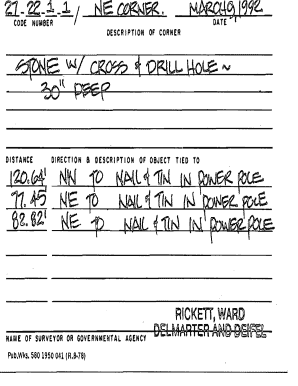 27-22-1-1 / NE CORNER. MARCH 9, 1992
CODE NUMBER DATE
DESCRIPTION OF CORNER
STONE W/ CROSS & DRILL HOLE ~
30" DEEP
DISTANCE DIRECTION & DESCRIPTION OF OBJECT TIED TO
120.64' NW TO NAIL & TIN IN POWER POLE
77.45 NE TO NAIL & TIN IN POWER POLE
82.82' NE TO NAIL & TIN IN POWER POLE
RICKETT, WARD
DELMARTER AND DEIFEL
NAME OF SURVEYOR OR GOVERNMENTAL AGENCY
Pub.Wks. 580 1950 041 (R.8-78)